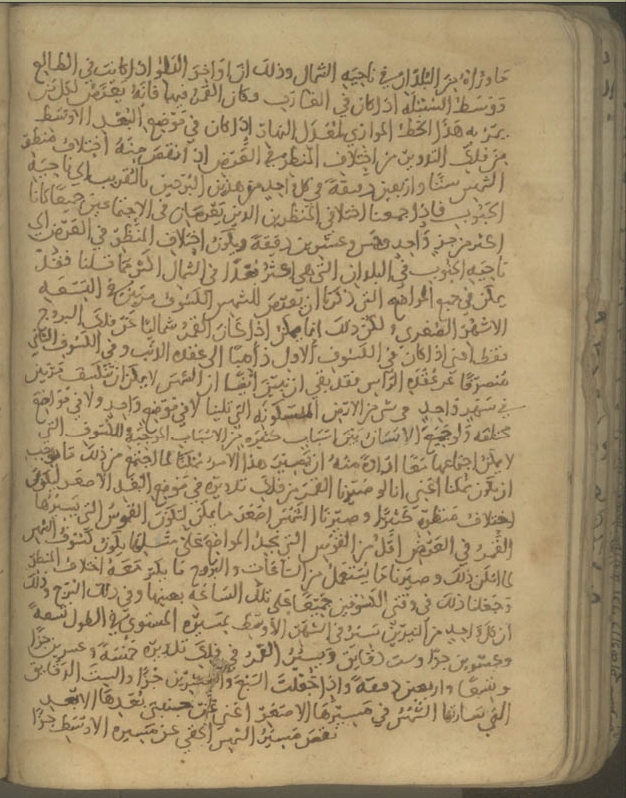 من البلدان في ناحية الشمال وذلك انا واجدو اذا كانت في الطالع
ووسط السنبلة اذا كان في الغارب وكان القمر فيها فانه يعرض لكل من
يمر به هذا الخط الموازي لمعدل النهار اذا كان في موضع البعد الاوسط
من فلك التدوير من اختلاف المنظر في العرض اذا انقص منه اختلاف منظر
الشمس ستا واربعين دقيقة في كل واحد من هذين البرجين بالقرب الى ناحية
الجنوب فاذا جمعنا اختلافي المنظرين الذين يعرضان في الاجتماعين جميعا كانا
اكثر من جزء واحد وخمس وعشرين دقيقة ويكون اختلاف المنظر في العرض الى
ناحية الجنوب في البلدان التي هي اكثر بعدا في الشمال اكثر مما قلنا فقد
يمكن في جميع المواضع التي ذكرنا ان يعرض للشمس الكسوف مرتين في التسعة
الاشهر الصغرى لكن ذلك انما يمكن اذا كان القمر شماليا عن فلك البروج
فقط اعني اذا كان في الكسوف الاول ذاهبا الى عقدة الذنب وفي الكسوف الثاني
منصرفا عن عقدة الراس فقد بقي ان نبين ايضا ان الشمس لا يمكن ان تنكسف مرتين
في شهر واحد في شيء من الارض المسكونة التي تلينا لا في موضع واحد ولا في مواضع
مختلفة ولو جمع الانسان اسباب كثيرة من الاسباب الموجبة للكسوف التي
لا يمكن اجتماعها معا ارادة منه ان يصير هذا الامر ممكنا لما اجتمع من ذلك ما يجب
ان يكون ممكنا اعني انا لو صيرنا القمر من فلك تدويره في موضع البعد الاصغر ليكون
اختلاف منظره كثيرا وصيرنا الشهر اصغر ما يمكن لتكون القوس التي يسيرها
القمر في العرض اقل من القوس التي تحد المواضع على مثلها يكون كسوف الشمس
لما امكن ذلك وصيرنا ما يستعمل من الساعات والبروج ما يكثر معه اختلاف المنظر
وجعلنا ذلك في وقتي الكسوفين جميعا على تلك الساعة بعينها وفي ذلك البرج وذلك
ان كل واحد من النيرين سير في الشهر الاوسط بمسيره المستوي في الطول تسعة
وعشرين جزءا وست دقايق ويسير القمر في فلك تدويره خمسة وعشرين جزءا
وتسعا واربعين دقيقة واذا جعلت التسع والعشرين جزءا والست الدقايق
التي تسارها الشمس في مسيرها الاصغر اعني عن جنبتي بعدها الابعد
نقص مسير الشمس الحقي عن مسيره الاوسط جزءا